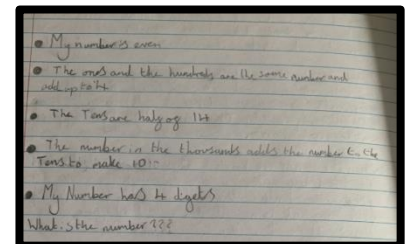 • My number is even
• The ones and the hundreds are the same number and
add up to 4
• The Tens are half of 14
• The number in the thousands adds the number to the
Tens to make 10
• My Number has 4 digets
What.s the number ???